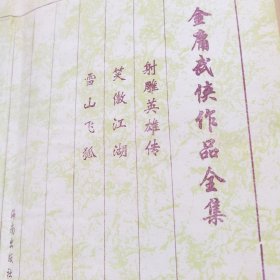 金庸武侠作品全集
射雕英雄传
笑傲江湖
雪山飞狐
海南出版社